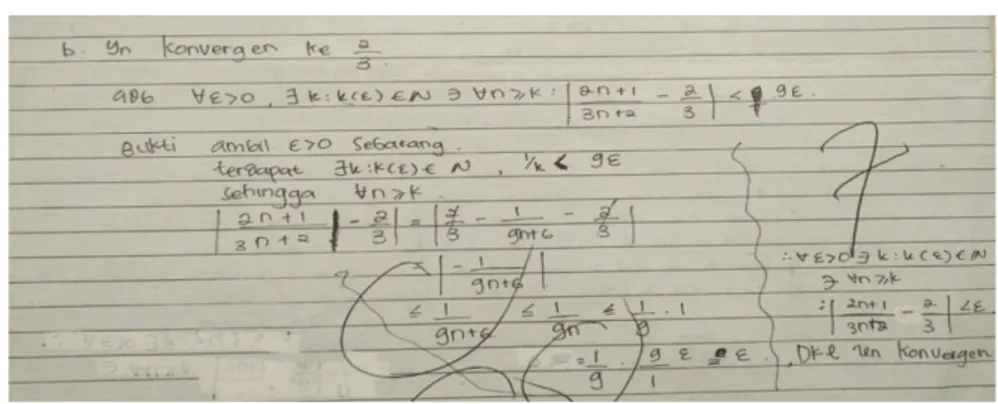 b. Yn konvergen ke 2/3.
adb ∀ε>0, ∃ k: k(ε) ∈ N ∋ ∀n≥k: |2n+1/3n+2 - 2/3| < 9ε.
Bukti ambil ε>0 sebarang.
terdapat ∃k: k(ε) ∈ N, 1/k < 9ε
sehingga ∀n≥k.
|2n+1/3n+2 | - 2/3| = |2/3 - 1/9n+6 - 2/3|
= |- 1/9n+6|
≤ 1/9n+6 ≤ 1/9n ≤ 1/9 . 1
= 1/9 . 9/1 ε = ε.
∴ ∀ε>0 ∃ k: k(ε) ∈ N
∋ ∀n≥k
: |2n+1/3n+2 - 2/3| < ε.
Dkl konvergen